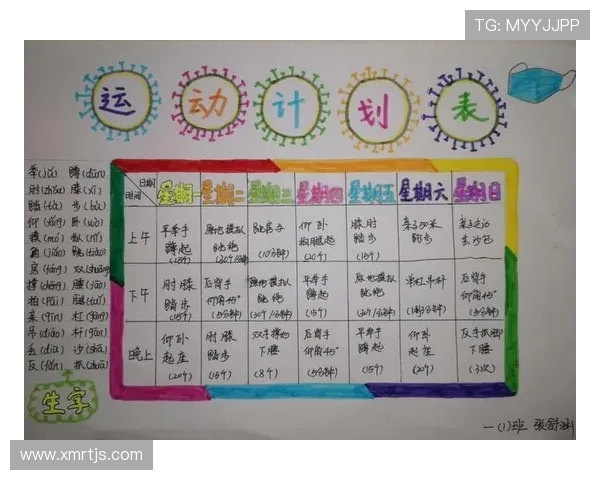 TG: MYYJJPP
运动计划表
举(jǔ) 蹲(dūn)
肘(zhǒu) 膝(xī)
踏(tà) 步(bù)
仰(yǎng) 卧(wò)
模(mó) 拟(nǐ)
角(jiǎo) 跳(tiào)
房(fáng) 双(shuāng)
撑(chēng) 腰(yāo)
拍(pāi) 腿(tuǐ)
亲(qīn) 杠(gàng)
吊(diào) 杆(gān)
丢(diū) 沙(shā)
反(fǎn) 抓(zhuā)
生字
日期 时间 星期一 星期二 星期三 星期四 星期五 星期六 星期日
上午 平举手蹲起(15个) 原地模拟跳绳(30个/1分钟) 跳房子(10分钟) 仰卧抬腿起(20个) 膝肘踏步(15个) 亲子50米踏步 亲子互动丢沙包
下午 肘膝踏步(15个) 后背手仰角45°(5分钟) 原地模拟跳绳(30个/1分钟) 平举手蹲起(15个) 原地模拟跳绳(30个/1分钟) 单杠吊杆 后背手仰角45°(5分钟)
晚上 仰卧起座(20个) 肘膝踏步(15个) 双手撑地下腰(8个) 后背手仰角45°(5分钟) 平举手蹲起(15个) 仰卧起座(20个) 反手抓脚下腰(3次)
一(1)班 张舒涵
www.xmrtjs.com